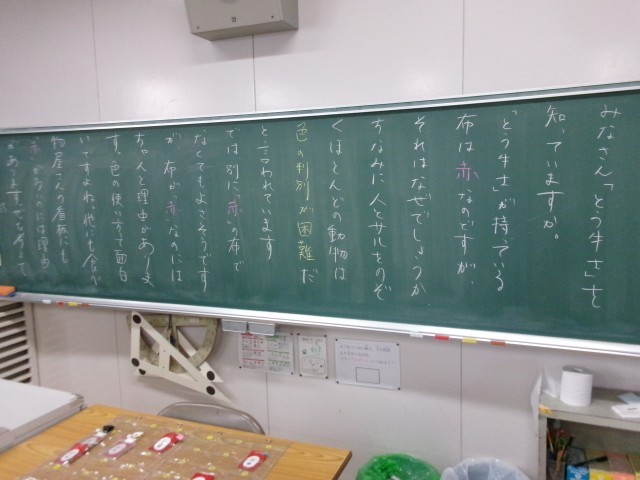 みなさん「とう牛さ」を
知っていますか。
「とう牛さ」が持っている
布は赤なのですが、
それはなぜでしょうか
ちなみに人とサルをのぞ
くほとんどの動物は
色の判別が困難だ
と言われています
では別に、赤の布で
なくてもよさそうです
が、布が赤なのには
ちゃんと理由があります
す。色の使い方って面白
いですよね。他にも
物屋さんの看板にも
赤があるのには理由
があります